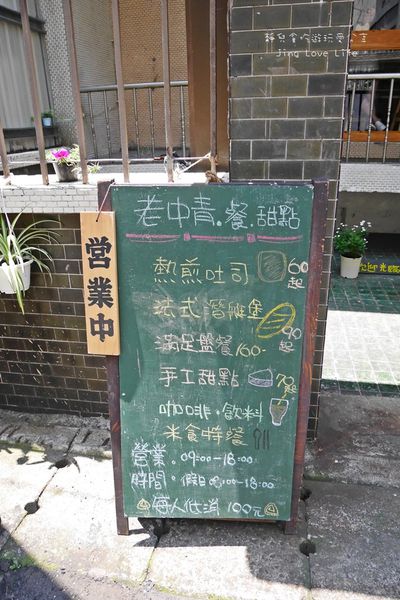 靜兒貪吃遊玩愛分享
Jing Love Life
老中青。餐。甜點
営業中
熱煎吐司 60起
法式潛艇堡 90起
滿足盤餐160-
手工甜點 70起
咖啡。飲料
米食特餐
營業。09:00-18:00
時間。假日08:00-18:00
每人低消100元
歡迎光臨